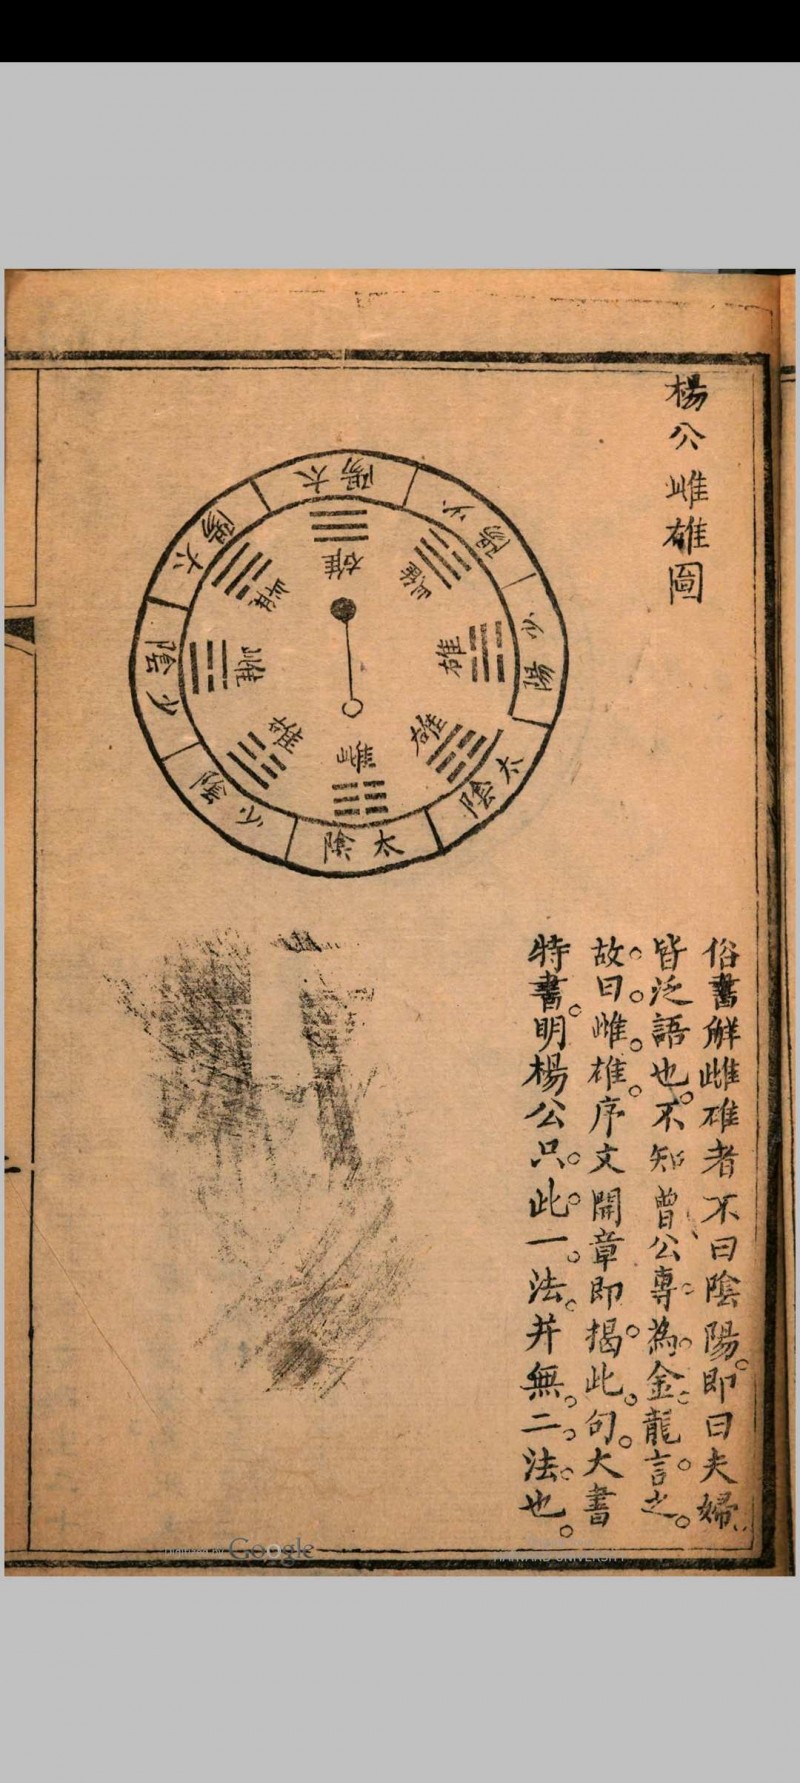 楊公雌雄圖
太陽
少陽
少陽
太陰
太陰
少陰
少陰
太陽
雄
雌
雄
雄
雌
雌
俗書解雌雄者不曰陰陽。即曰夫婦
皆泛語也。不知曾公專。為。金。龍言。之。
故。曰。雌。雄。序文開章即揭。此。句。大書
特書。明楊公只。此。一。法。并無。二。法。也。
Digitized by Google
HARVARD UNIVERSITY